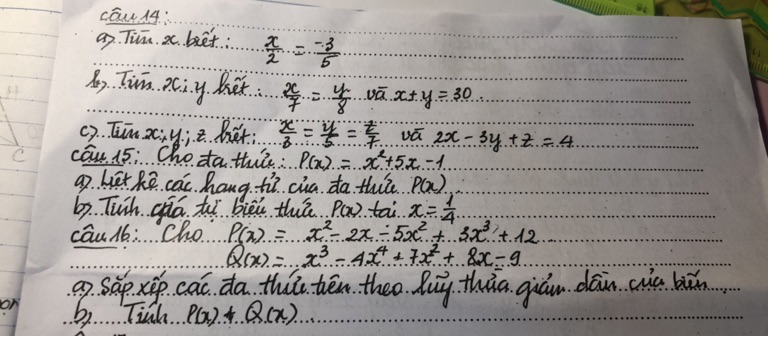 câu 14:
a) Tìm x biết: x/2 = -3/5
b) Tìm x; y biết: x/7 = y/8 và x + y = 30.
c) Tìm x; y; z biết: x/3 = y/5 = z/7 và 2x - 3y + z = 4
câu 15: Cho đa thức: P(x) = x² + 5x - 1
a) Liệt kê các hạng tử của đa thức P(x).
b) Tính giá trị biểu thức P(x) tại x = 1/4
câu 16: Cho P(x) = x² - 2x - 5x² + 3x³ + 12
Q(x) = x³ - 4x⁴ + 7x² + 8x - 9
a) Sắp xếp các đa thức trên theo lũy thừa giảm dần của biến
b) Tính P(x) + Q(x)